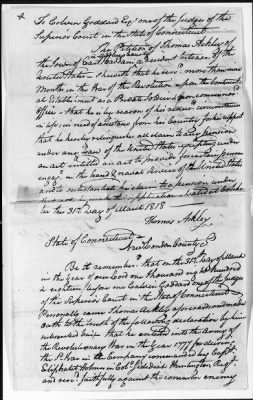 To Calvin Goddard Esqr one of the Judges of the
Superior Court in the State of Connecticut
The Petition of Thomas Ackley of
the Town of East Haddam a resident Citizen of the
United States - Sheweth that he serv nine
Months in the War of the Revolution upon the Continent
al Establishment as a Private Soldier
Officer - that he is by reason of his reduced circumstances
in life, in need of assistance from his Country for his support
that he hereby relinquishes all claim to any pension
under any Laws of the United States excepting under
an act entitled an act to provide for certain persons
engaged in the land & naval service of the United States
and to substantiate his claim to a pension under
dated at
the 31st day of March 1818
Thomas Ackley
State of Connecticut
New London County
Be it remembered that on the 31st day of March
in the year of our Lord one thousand eight hundred
& eighteen before me Calvin Goddard one of the Judges
of the Superior Court in the State of Connecticut
Personally came Thomas Ackley aforesaid and made
Oath to the truth of the following declaration by him
subscribed viz that he entered into the Army of
the Revolutionary War in the year 1777 for during
the sd War in the Company commanded by Capt
Eliphalet Holmes in Colo Jedediah Huntington Regt
and served faithfully against the common enemy